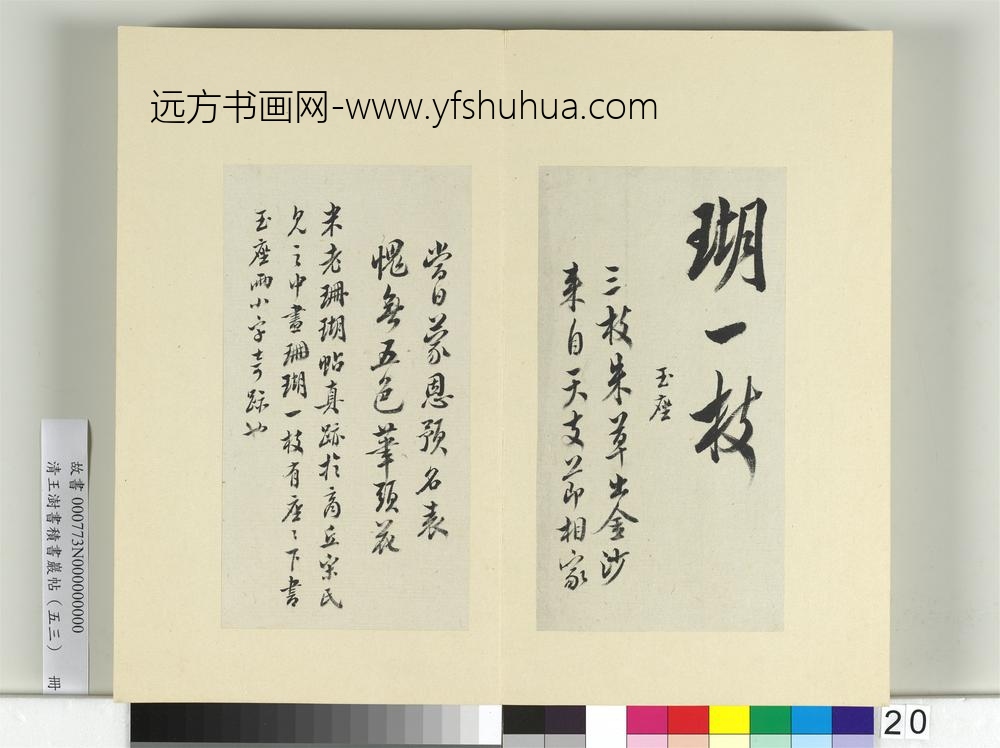 远方书画网-www.yfshuhua.com
瑚一枝
玉座
三枝朱草出金沙
来自天支節相家
当日蒙恩預名表
愧無五色筆頭花
米老珊瑚帖真跡於商丘宋氏
見之中畫珊瑚一枝有座〻下書
玉座兩小字奇跡也
故書 000773N000000000
清王澍書積書巖帖（五三） 冊
20